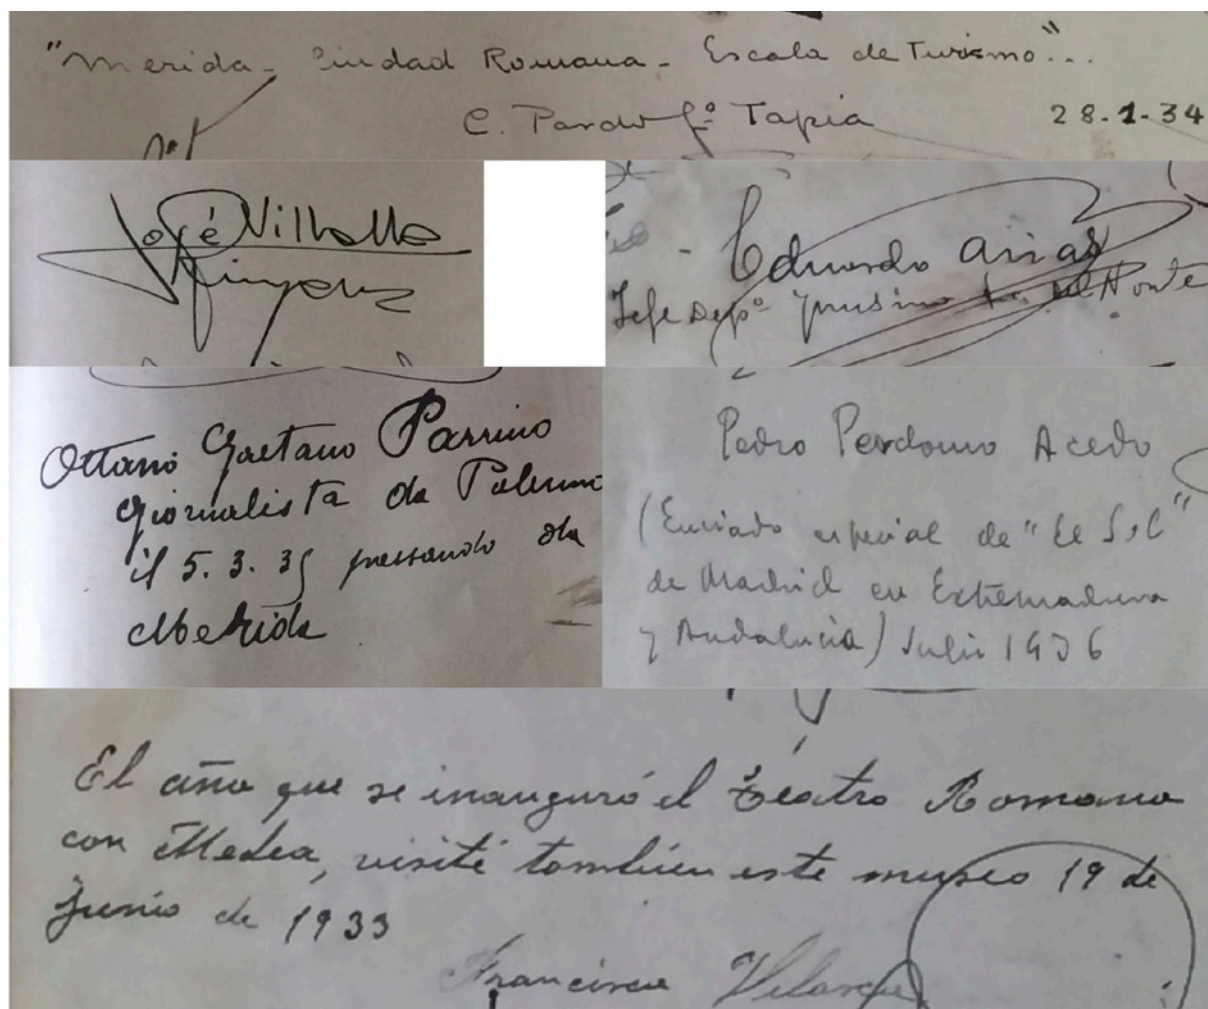 "Merida - Ciudad Romana - Escala de Turismo"...
C. Pardo Gª Tapia 28-1-34
José Villalba
Eduardo Arias
Jefe Depº del Norte
Ottavio Gaetano Parrino
giornalista da Palermo
il 5.3.35 passando da
Merida
Pedro Perdomo Acedo
(Enviado especial de "El Sol"
de Madrid en Extremadura
y Andalucia) Julio 1936
El año que se inauguró el Teatro Romano
con Medea, visité tambien este museo 19 de
Junio de 1933
Francisco